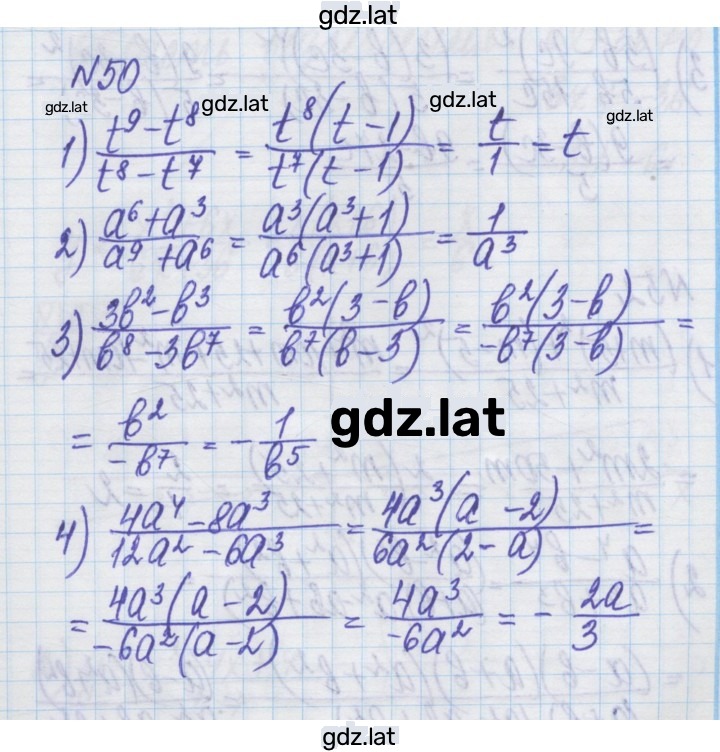 gdz.lat
N50
gdz.lat gdz.lat gdz.lat gdz.lat
1) (t⁹ - t⁸)/(t⁸ - t⁷) = (t⁸(t - 1))/(t⁷(t - 1)) = t/1 = t
2) (a⁶ + a³)/(a⁹ + a⁶) = (a³(a³ + 1))/(a⁶(a³ + 1)) = 1/a³
3) (3b² - b³)/(b⁸ - 3b⁷) = (b²(3 - b))/(b⁷(b - 3)) = (b²(3 - b))/(-b⁷(3 - b)) =
= b²/(-b⁷) = - 1/b⁵
gdz.lat
4) (4a⁴ - 8a³)/(12a² - 6a³) = (4a³(a - 2))/(6a²(2 - a)) =
= (4a³(a - 2))/(-6a²(a - 2)) = 4a³/(-6a²) = - 2a/3
gdz.lat